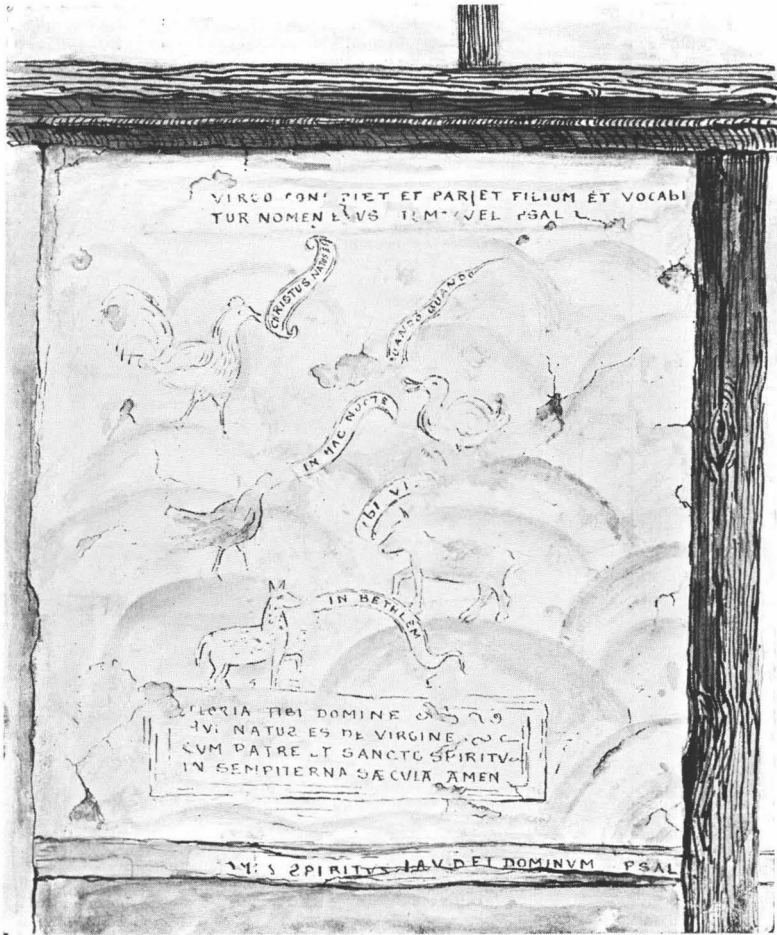 ET PARIET FILIUM ET VOCABI
TUR NOMEN PSAL
CHRISTUS NATUS EST
QUANDO QUANDO
IN HAC NOCTE
IBI VI
IN BETHLEM
TIBI DOMINE
NATUS ES DE VIRGINE
CUM PATRE ET SANCTO SPIRITV
IN SEMPITERNA SÆCULA AMEN
SPIRITVS LAVDET DOMINVM PSAL